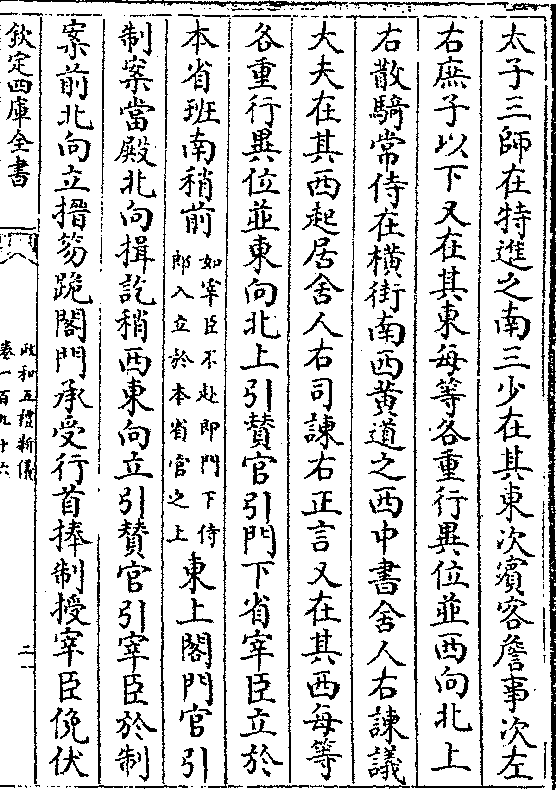 太子三師在特進之南三少在其東次賓客詹事次左
右庶子以下又在其東每等各重行異位並西向北上
右散騎常侍在橫街南西黄道之西中書舍人右諫議
大夫在其西起居舍人右司諫右正言又在其西每等
各重行異位並東向北上引賛官引門下省宰臣立於
本省班南稍前如宰臣不赴即門下侍郎入立於本省官之上東上閣門官引
制案當殿北向揖訖稍西東向立引賛官引宰臣於制
案前北向立搢笏跪閣門承受行首捧制授宰臣俛伏
欽定四庫全書
政和五禮新儀
卷一百九十六
二